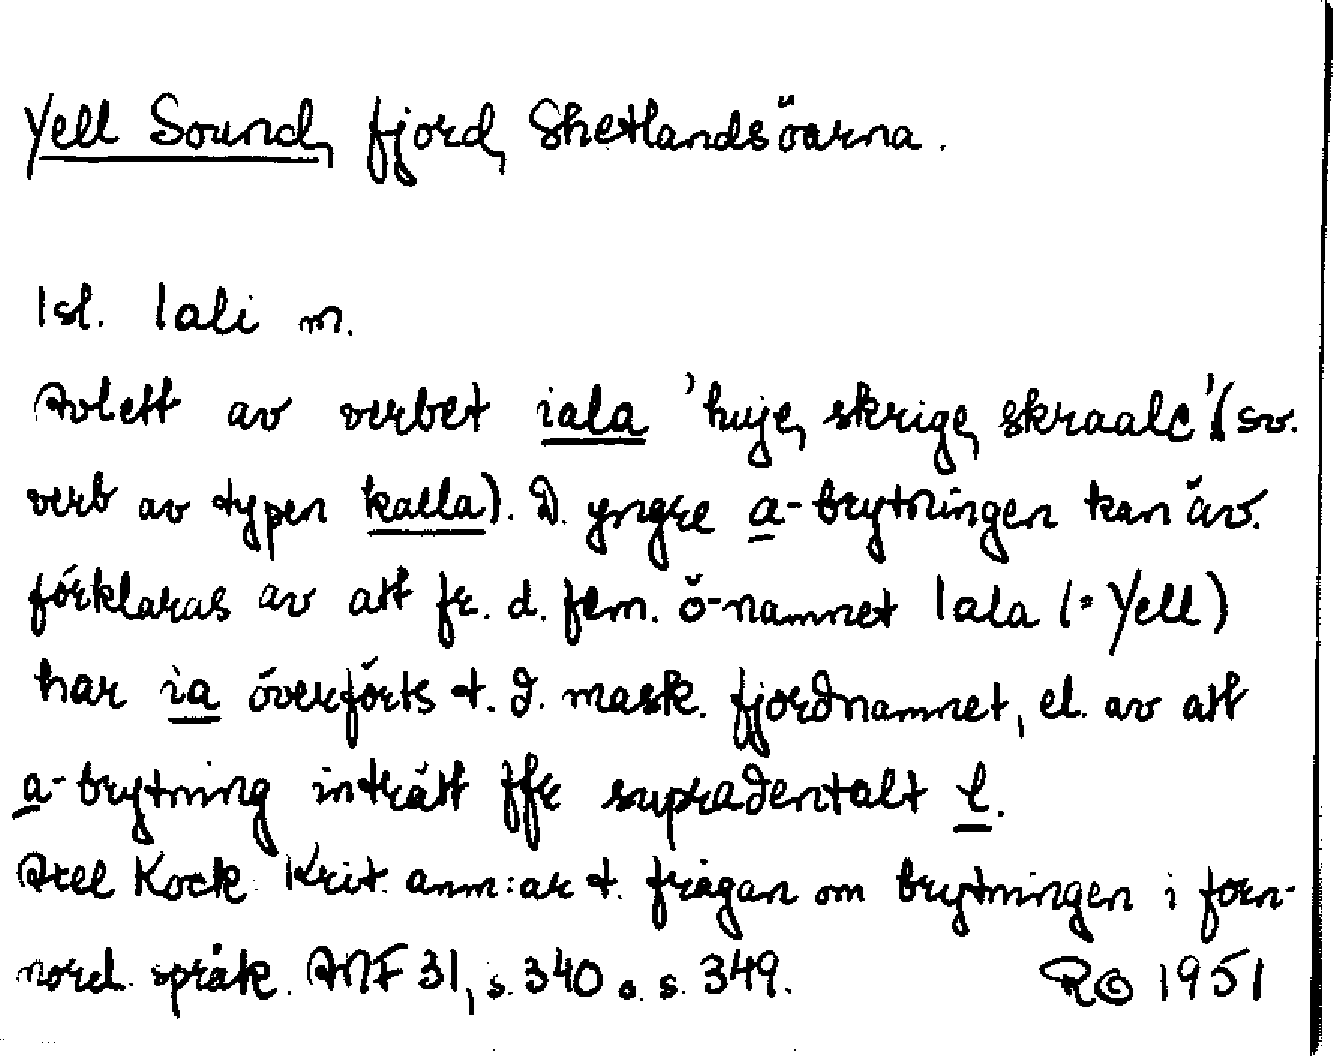 Yell Sound, fjord, Shetlandsöarna.
Isl. Iali m.
Avlett av verbet iala 'huje, skrige, skraale' (sv.
verb av typen kalla). D. yngre a-brytningen kan äv.
förklaras av att fr. d. fem. ö-namnet Iala (= Yell)
har ia överförts t. d. mask. fjordnamnet, el. av att
a-brytning inträtt ffr supradentalt l.
Axel Kock Krit. anm:ar t. frågan om brytningen i forn-
nord. språk. ANF 31, s. 340 o. s. 349.
1951